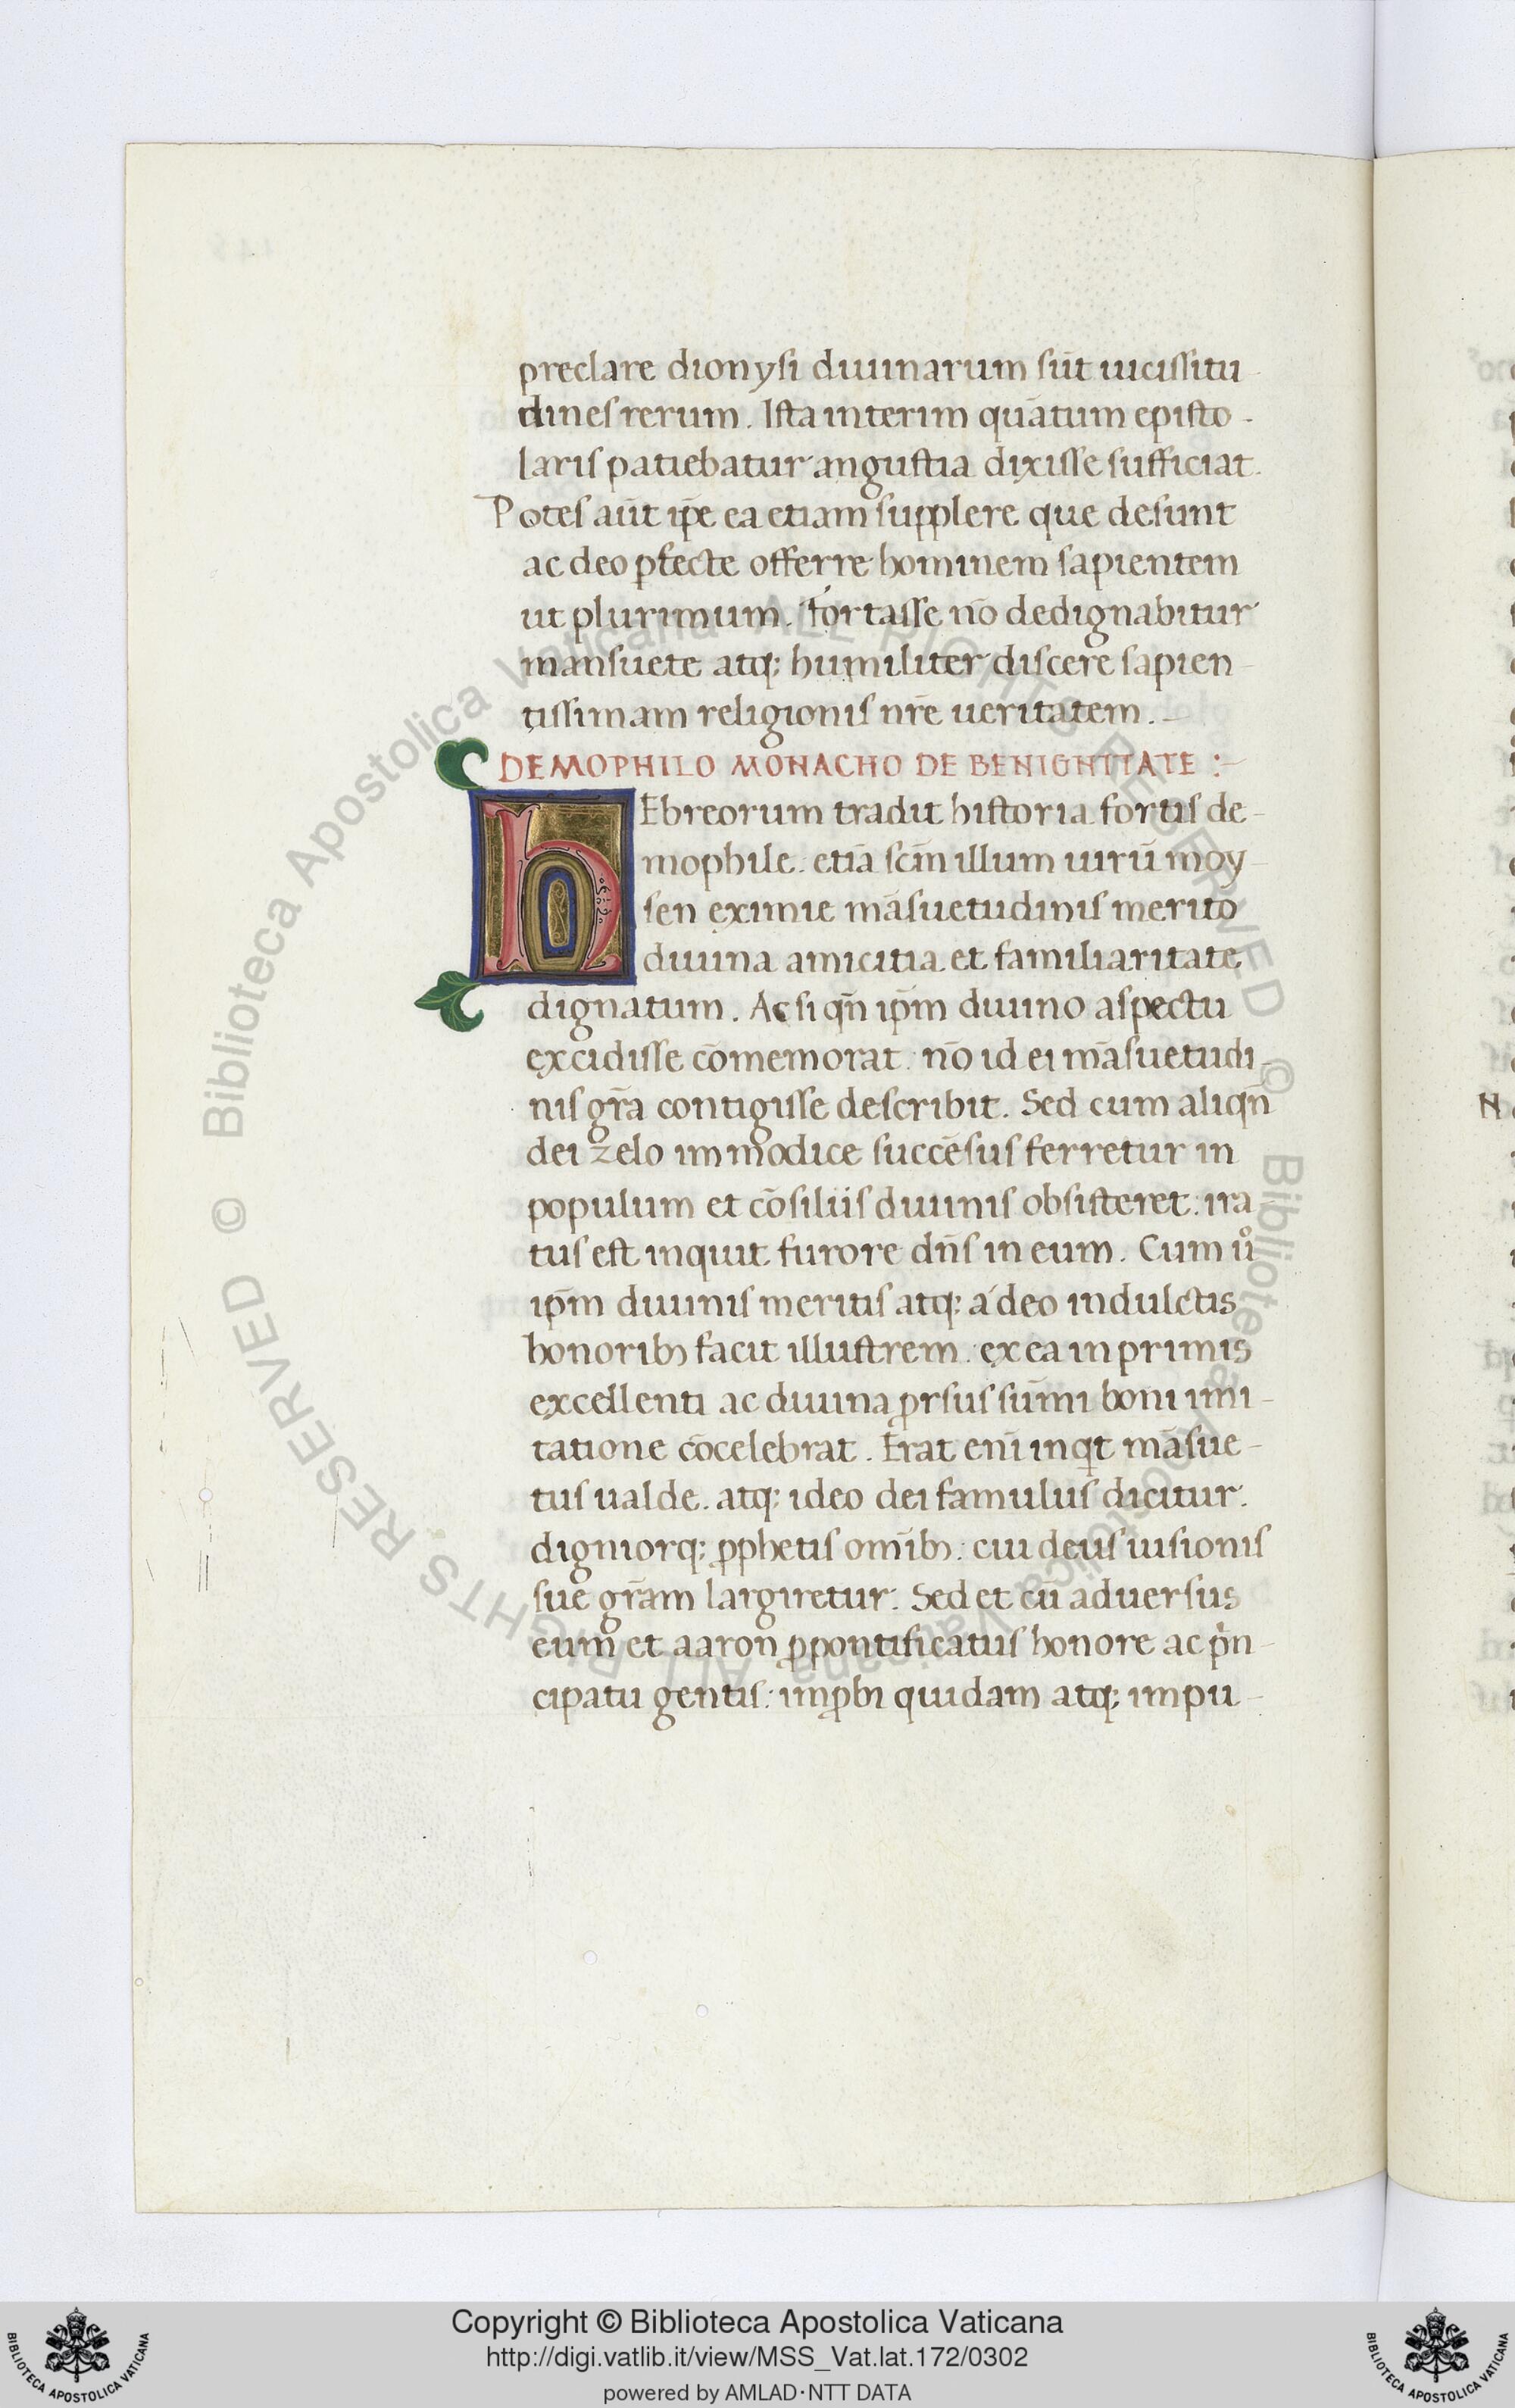 preclare dionysi diuinarum sūt uicissitu-
dines rerum. Ista interim quātum episto-
laris patiebatur angustia dixisse sufficiat.
Potes aūt ip̄e ea etiam supplere que desunt
ac deo ꝑfecte offerre hominem sapientem
ut plurimum. fortasse nō dedignabitur
mansuete atq; humiliter discere sapien-
tissimam religionis nr̄e ueritatem.-
DEMOPHILO MONACHO DE BENIGNITATE :-
hEbreorum tradit historia fortis de-
mophile. etiā scm̄ illum uirū moy-
sen eximie māsuetudinis merito
diuina amicitia et familiaritate
dignatum. Ac si qn̄ ip̄m diuino aspectu
excidisse cōmemorat. nō id ei māsuetudi-
nis gr̄a contigisse describit. Sed cum aliqn̄
dei zelo immodice succēsus ferretur in
populum et cōsiliis diuinis obsisteret. ira
tus est inquit furore dn̄s in eum. Cum uͦ
ip̄m diuinis meritis atq; a deo indulctis
honoribꝫ facit illustrem. ex ea in primis
excellenti ac diuina ꝓrsus sūmi boni imi-
tatione cōcelebrat. Erat eni̅ inqt māsue-
tus ualde. atq; ideo dei famulus dicitur.
digniorq; ꝓphetis omībꝫ. cui deus uisionis
sue gr̄am largiretur. Sed et cū aduersus
eum et aaron ꝓ pontificatus honore ac pin-
cipatu gentis. imꝓbi quidam atq; impu-
N
Copyright © Biblioteca Apostolica Vaticana
http://digi.vatlib.it/view/MSS_Vat.lat.172/0302
powered by AMLAD·NTT DATA
BIBLIOTECA APOSTOLICA VATICANA
BIBLIOTECA APOSTOLICA VATICANA
© Biblioteca Apostolica Vaticana ALL RIGHTS RESERVED
© Biblioteca Apostolica Vaticana ALL RIGHTS RESERVED